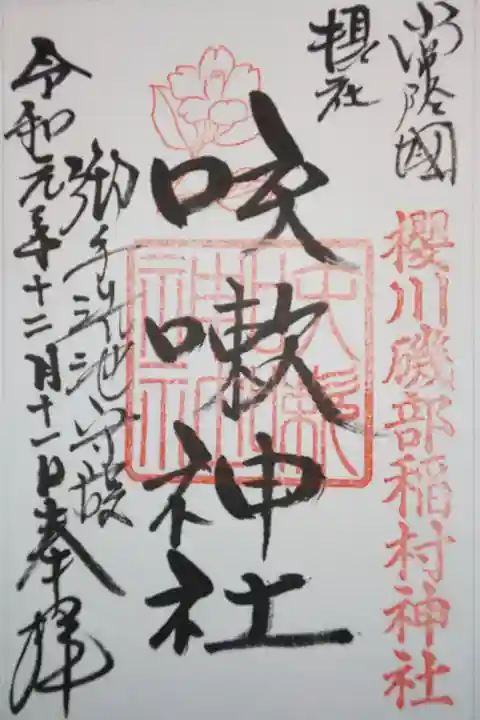 常陸國
摂社
櫻川磯部稲村神社
咳嗽神社
御手洗池守護
令和元年十二月十一日奉拝